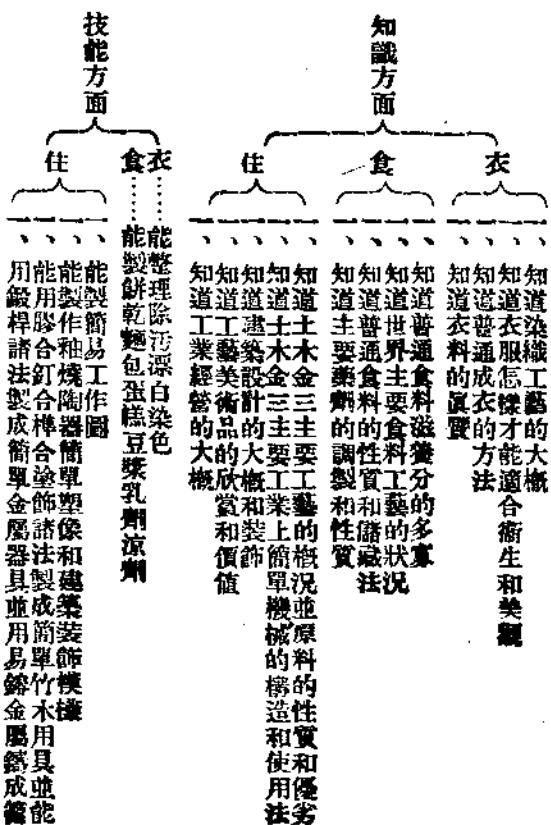 知識方面
衣
一、知道染織工藝的大概
一、知道衣服怎樣才能適合衞生和美觀
一、知道普通成衣的方法
一、知道衣料的眞贋
食
一、知道普通食料滋養分的多寡
一、知道世界主要食料工藝的狀况
一、知道普通食料的性質和儲藏法
一、知道主要藥劑的調製和性質
住
一、知道土木金三主要工藝的概况並原料的性質和優劣
一、知道土木金三主要工業上簡單機械的構造和使用法
一、知道建築設計的大概和裝飾
一、知道工藝美術品的欣賞和價值
一、知道工業經營的大概
技能方面
衣……能整理除污漂白染色
食……能製餅乾麵包蛋糕豆漿乳劑涼劑
住
一、能製簡易工作圖
一、能製作釉燒陶器簡單塑像和建築裝飾模樣
一、能用膠合釘合榫合塗飾諸法製成簡單竹木用具並能
一、用鍛桿諸法製成簡單金屬器具並用易鎔金屬鑄成簡